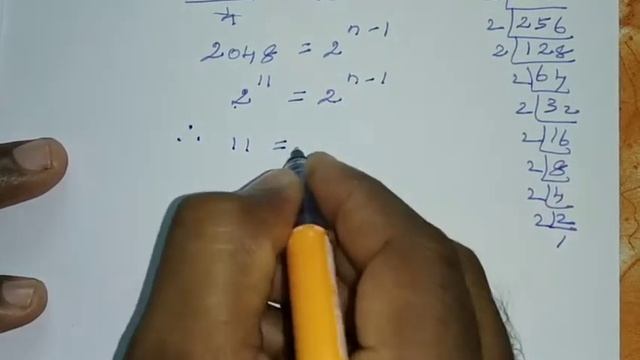 4
2048 = 2^{n-1}
2^{11} = 2^{n-1}
∴ 11 =
2 | 256
2 | 128
2 | 64
2 | 32
2 | 16
2 | 8
2 | 4
2 | 2
1